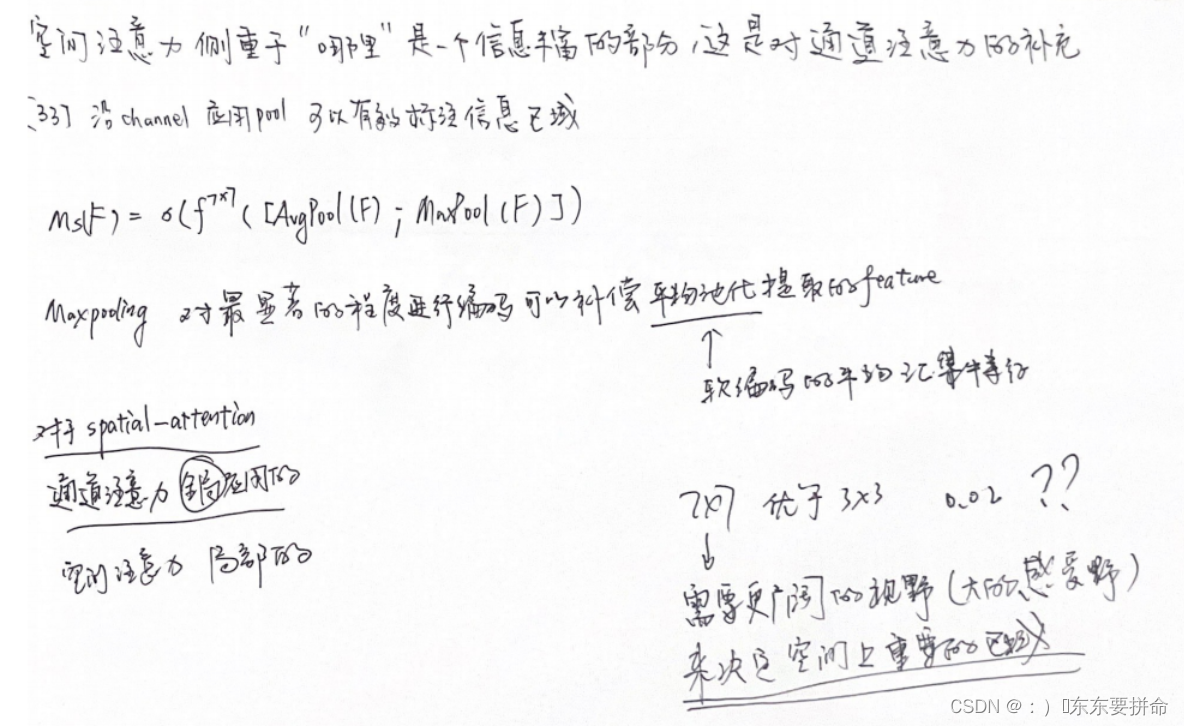 空间注意力侧重于“哪里”是一个信息丰富的部分,这是对通道注意力的补充
[33] 沿channel 应用pool 可以有效标注信息区域
Ms(F) = σ(f^7x7([AvgPool(F) ; MaxPool(F)]))
Maxpooling 对最显著的程度进行编码可以补偿平均池化提取的feature
↑
软编码的平均汇集特征
对于spatial-attention
通道注意力全局应用的
空间注意力 局部的
7x7 优于 3x3 0.02 ??
↓
需要更广阔的视野(大的感受野)
来决定空间上重要的区域
CSDN @:)东东要拼命